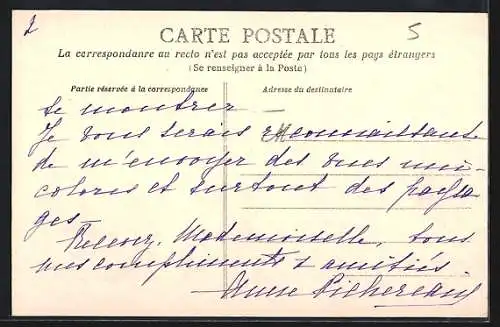 2
CARTE POSTALE
5
La correspondance au recto n'est pas acceptée par tous les pays étrangers
(Se renseigner à la Poste)
Partie réservée à la correspondance
Adresse du destinataire
se montrer
Je vous serais reconnaissante
de m'envoyer des vues uni-
colores et surtout des paysa
ges —
Recevez, Mademoiselle, tous
mes compliments & amitiés.
Anne Pichereau